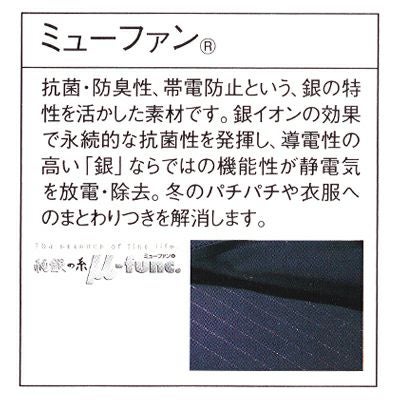 ミューファン®
抗菌・防臭性、帯電防止という、銀の特
性を活かした素材です。銀イオンの効果
で永続的な抗菌性を発揮し、導電性の
高い「銀」ならではの機能性が静電気
を放電・除去。冬のパチパチや衣服へ
のまとわりつきを解消します。
The essence of fine life.
ミューファン®
純銀の糸 μ-func.